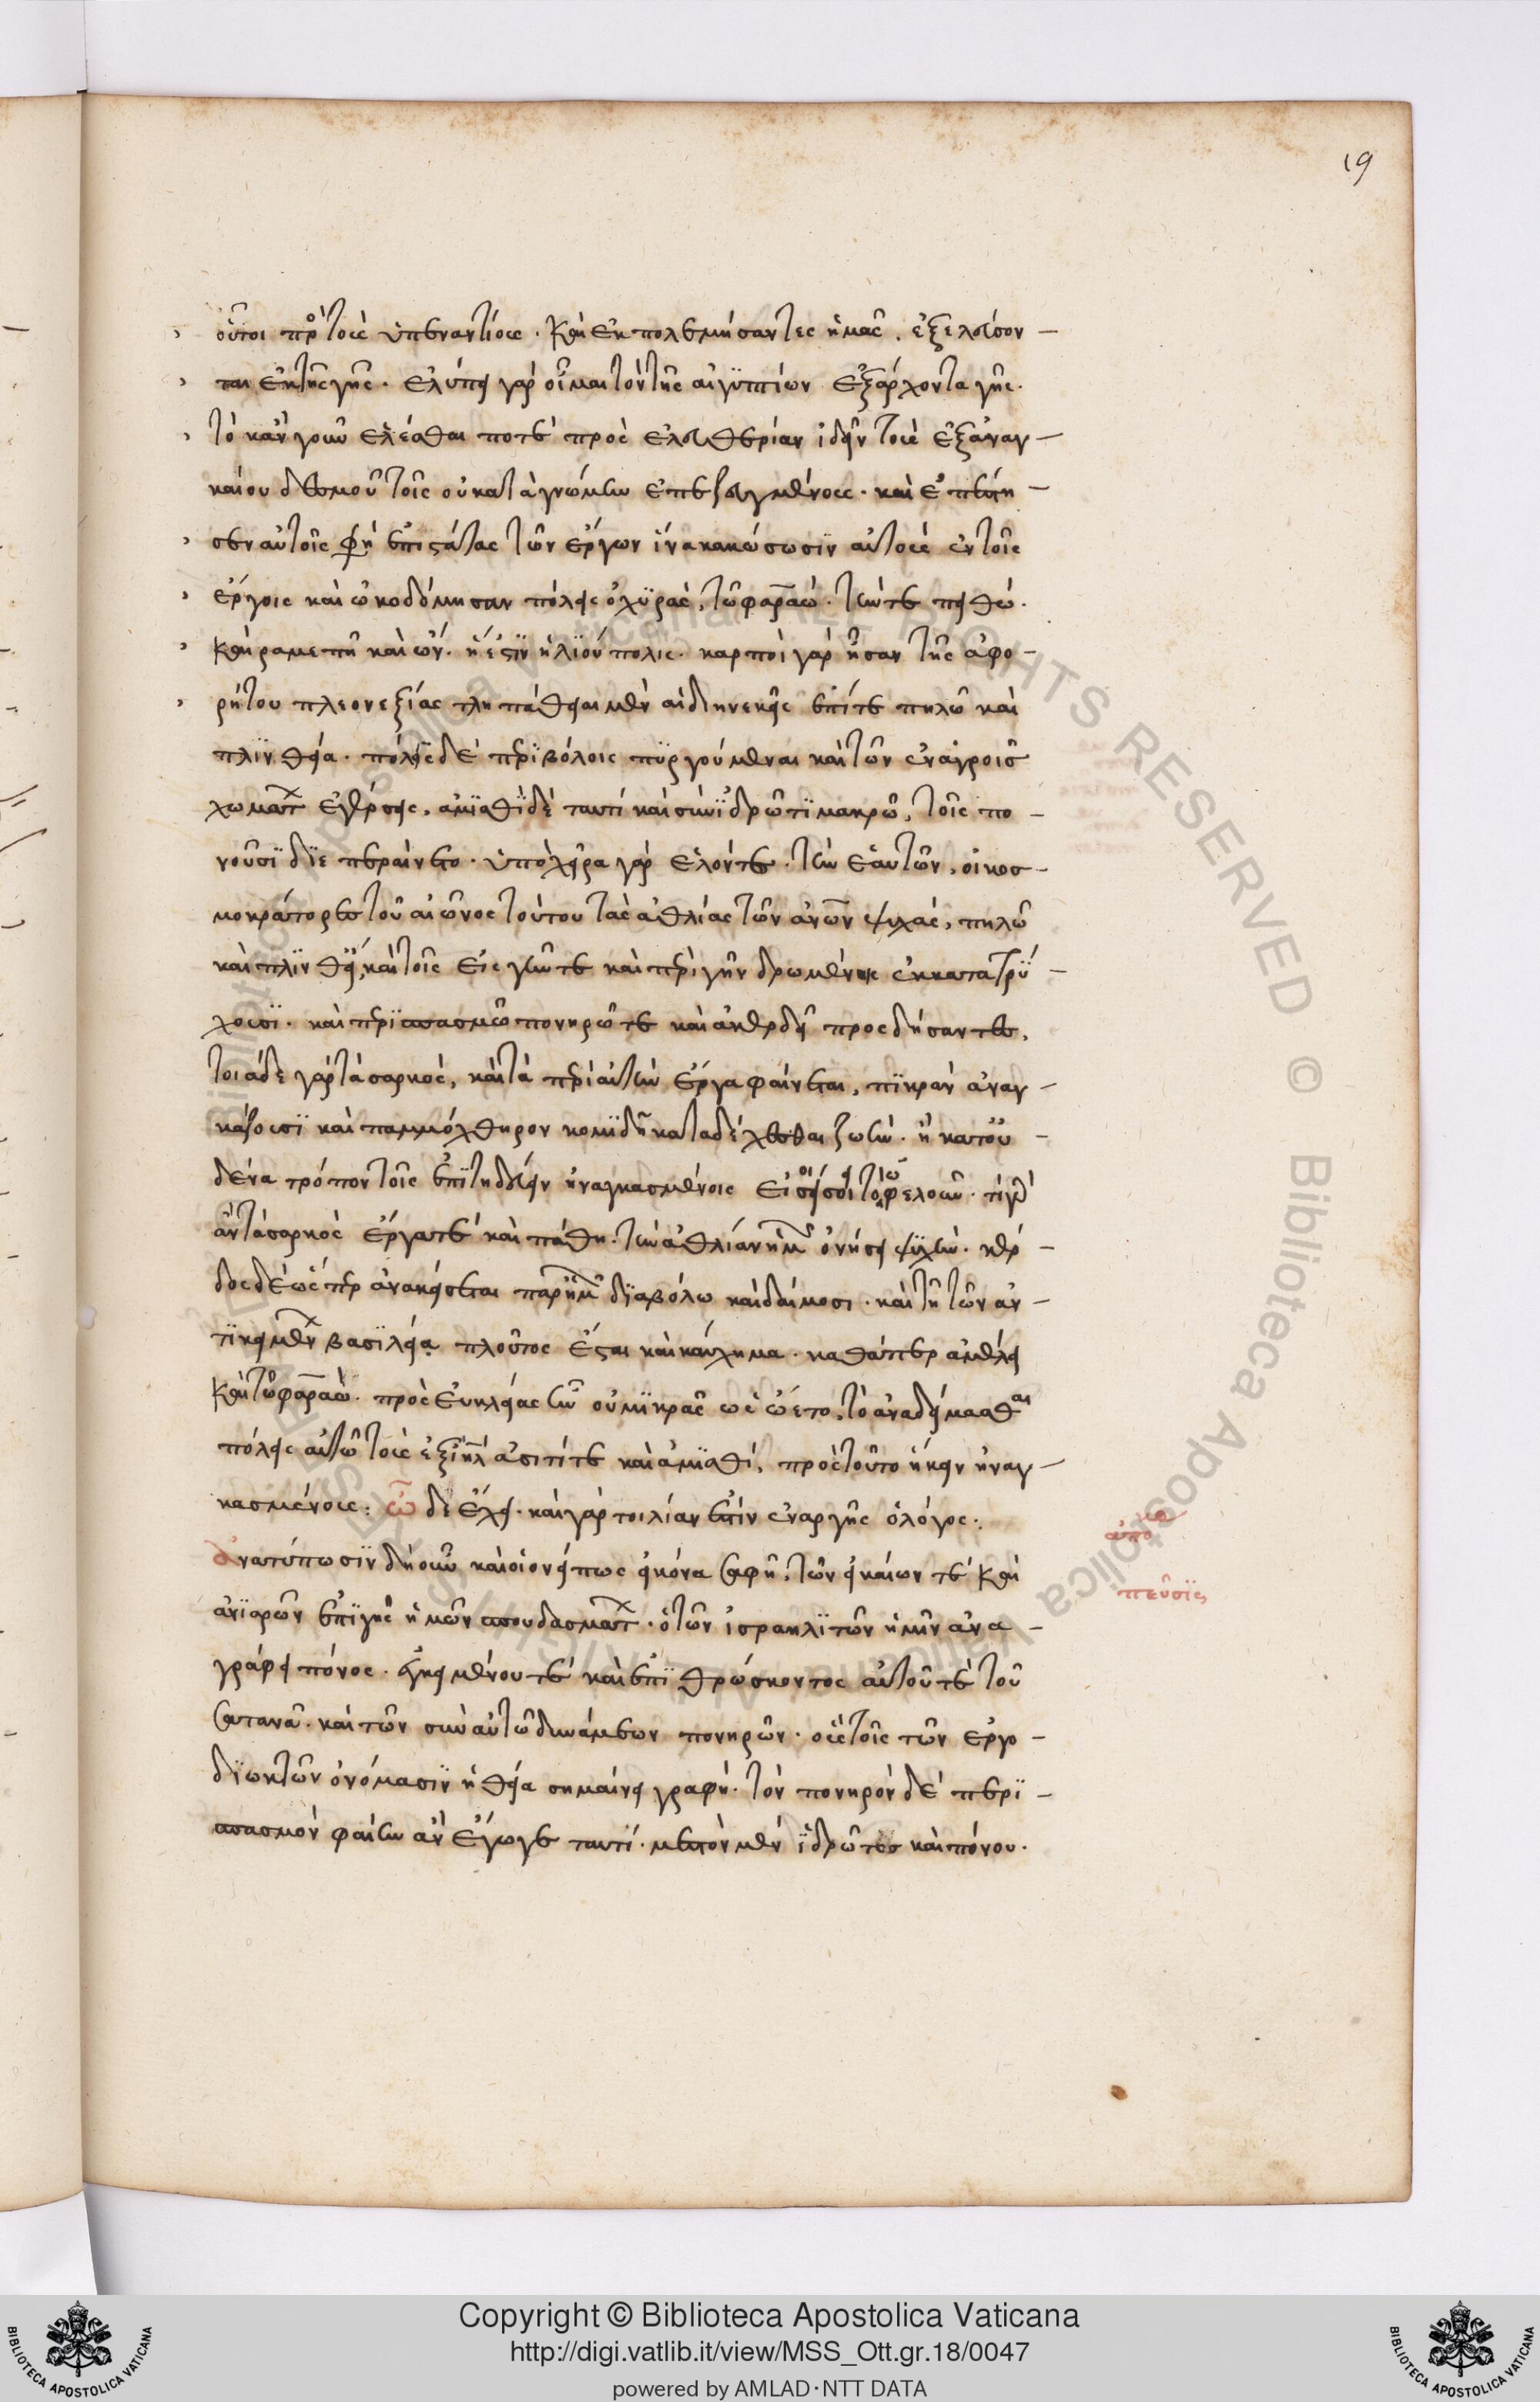 19
οὗτοι πρὸς τοὺς ὑπεναντίους. καὶ ἐκπολεμήσαντες ἡμᾶς, ἐξελεύσον
ται ἐκ τῆς γῆς. ἐλύπει γὰρ οἶμαι τὸν τῆς αἰγυπτίων ἐξάρχοντα γῆς.
τὸ κἂν γοῦν ἑλέσθαι ποτὲ πρὸς ἐλευθερίαν ἰδεῖν τοὺς ἐξ ἀναγ
καίου δεσμοῦ τοῖς οὐ κατὰ γνώμην ἐπεζευγμένους. καὶ ἐπέστη
σεν αὐτοῖς φη ἐπιστάτας τῶν ἔργων ἵνα κακώσωσιν αὐτοὺς ἐν τοῖς
ἔργοις καὶ ὠκοδόμησαν πόλεις ὀχυρὰς, τῶ φαραώ. τήν τε πειθώ.
καὶ ραμεσῆ καὶ ὤν. ἥ ἐστιν ἡλίου πόλις. καρποὶ γὰρ ἦσαν τῆς ἀφο
ρήτου πλεονεξίας τληπάθειαι μὲν αἱ διηνεκεῖς ἐπί τε πηλῶ καὶ
πλινθεία. πόλεις δὲ περιβόλοις πυργούμεναι καὶ τῶν ἐν ἀγροῖς
χωμάτων ἐγέρσεις, ἀμισθὶ δὲ ταυτὶ καὶ σὺν ἱδρῶτι μακρῶ, τοῖς πο
νοῦσι διεπεραίνετο. ὑποχείρια γὰρ ἑλόντες τῆ ἑαυτῶν, οἱ κοσ
μοκράτορες τοῦ αἰῶνος τούτου τὰς ἀθλίας τῶν ἀνῶν ψυχάς, πηλῶ
καὶ πλινθεία, καὶ τοῖς εἰς γῆν τε καὶ περὶ γῆν δρωμένοις ἐγκατατρύ
χουσι. καὶ περισπασμῶ πονηρῶ τε καὶ ἀκερδεῖ προσδήσαντες,
τοιάδε γὰρ τὰ σαρκὸς, καὶ τὰ περὶ αὐτὴν ἔργα φαίνεται, πικρὰν ἀναγ
κάζουσι καὶ παμμόχθηρον κομιδῆ καταδέχεσθαι ζωὴν. ἢ κατ' οὐ
δένα τρόπον τοῖς ἐπιτηδεύειν ἠναγκασμένοις εἰσοίσει τὸ ὠφελοῦν. τί γὰρ
ἂν τὰ σαρκὸς ἔργα τὲ καὶ πάθη. τὴν ἀθλίαν ἡμῶν ὀνήσει ψυχήν. κέρ
δος δὲ ὥσπερ ἀνακείσεται παρ' ἡμῶν διαβόλω καὶ δαίμοσι. καὶ τῆ τῶν ἀν
τικειμένων βασιλεία πλοῦτος ἔσται καὶ καύχημα. καθάπερ ἀμέλει
καὶ τῶ φαραώ. πρὸς εὐκλείας ἦν οὐ μικρᾶς ὡς ὤετο, τὸ ἀναδείμασθαι
πόλεις αὐτῶ τοὺς ἐξ ιηλ ἀσιτί τε καὶ ἀμισθί, πρὸς τοῦτο ἥκειν ἠναγ
κασμένους: ὧδε ἔχει. καὶ γάρ τοι λίαν ἐστὶν ἐναργὴς ὁ λόγος:
ἀνατύπωσιν δὴ οὖν καὶ οἱονεί πως εἰκόνα σαφῆ, τῶν εἰκαίων τὲ καὶ
ἀνιαρῶν ἐπὶ γῆς ἡμῶν σπουδασμάτων. ὁ τῶν ἰσραηλιτῶν ἡμῖν ἀνα
γράφει πόνος. ἐγκειμένου τὲ καὶ ἐπιθρώσκοντος αὐτοῦ τὲ τοῦ
σατανᾶ. καὶ τῶν σὺν αὐτῶ δυνάμεων πονηρῶν. οὓς τοῖς τῶν ἐργο
διωκτῶν ὀνόμασιν ἡ θεία σημαίνει γραφή. τὸν πονηρὸν δὲ περι
σπασμὸν φαίην ἂν ἔγωγε ταυτί. μεστὸν μὲν ἱδρῶτος καὶ πόνου.
ἀπο
πεῦσις
Copyright © Biblioteca Apostolica Vaticana
http://digi.vatlib.it/view/MSS_Ott.gr.18/0047
powered by AMLAD·NTT DATA